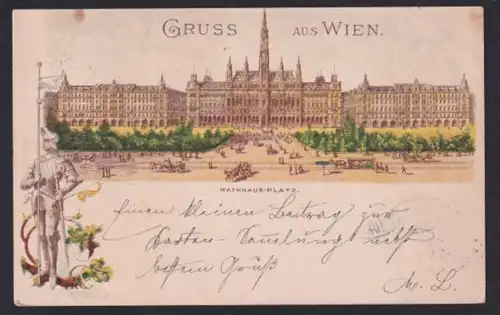 GRUSS AUS WIEN.
RATHHAUS-PLATZ.
Einen kleinen Beitrag zur
Karten-Sammlung nebst
bestem Gruß
M. L.